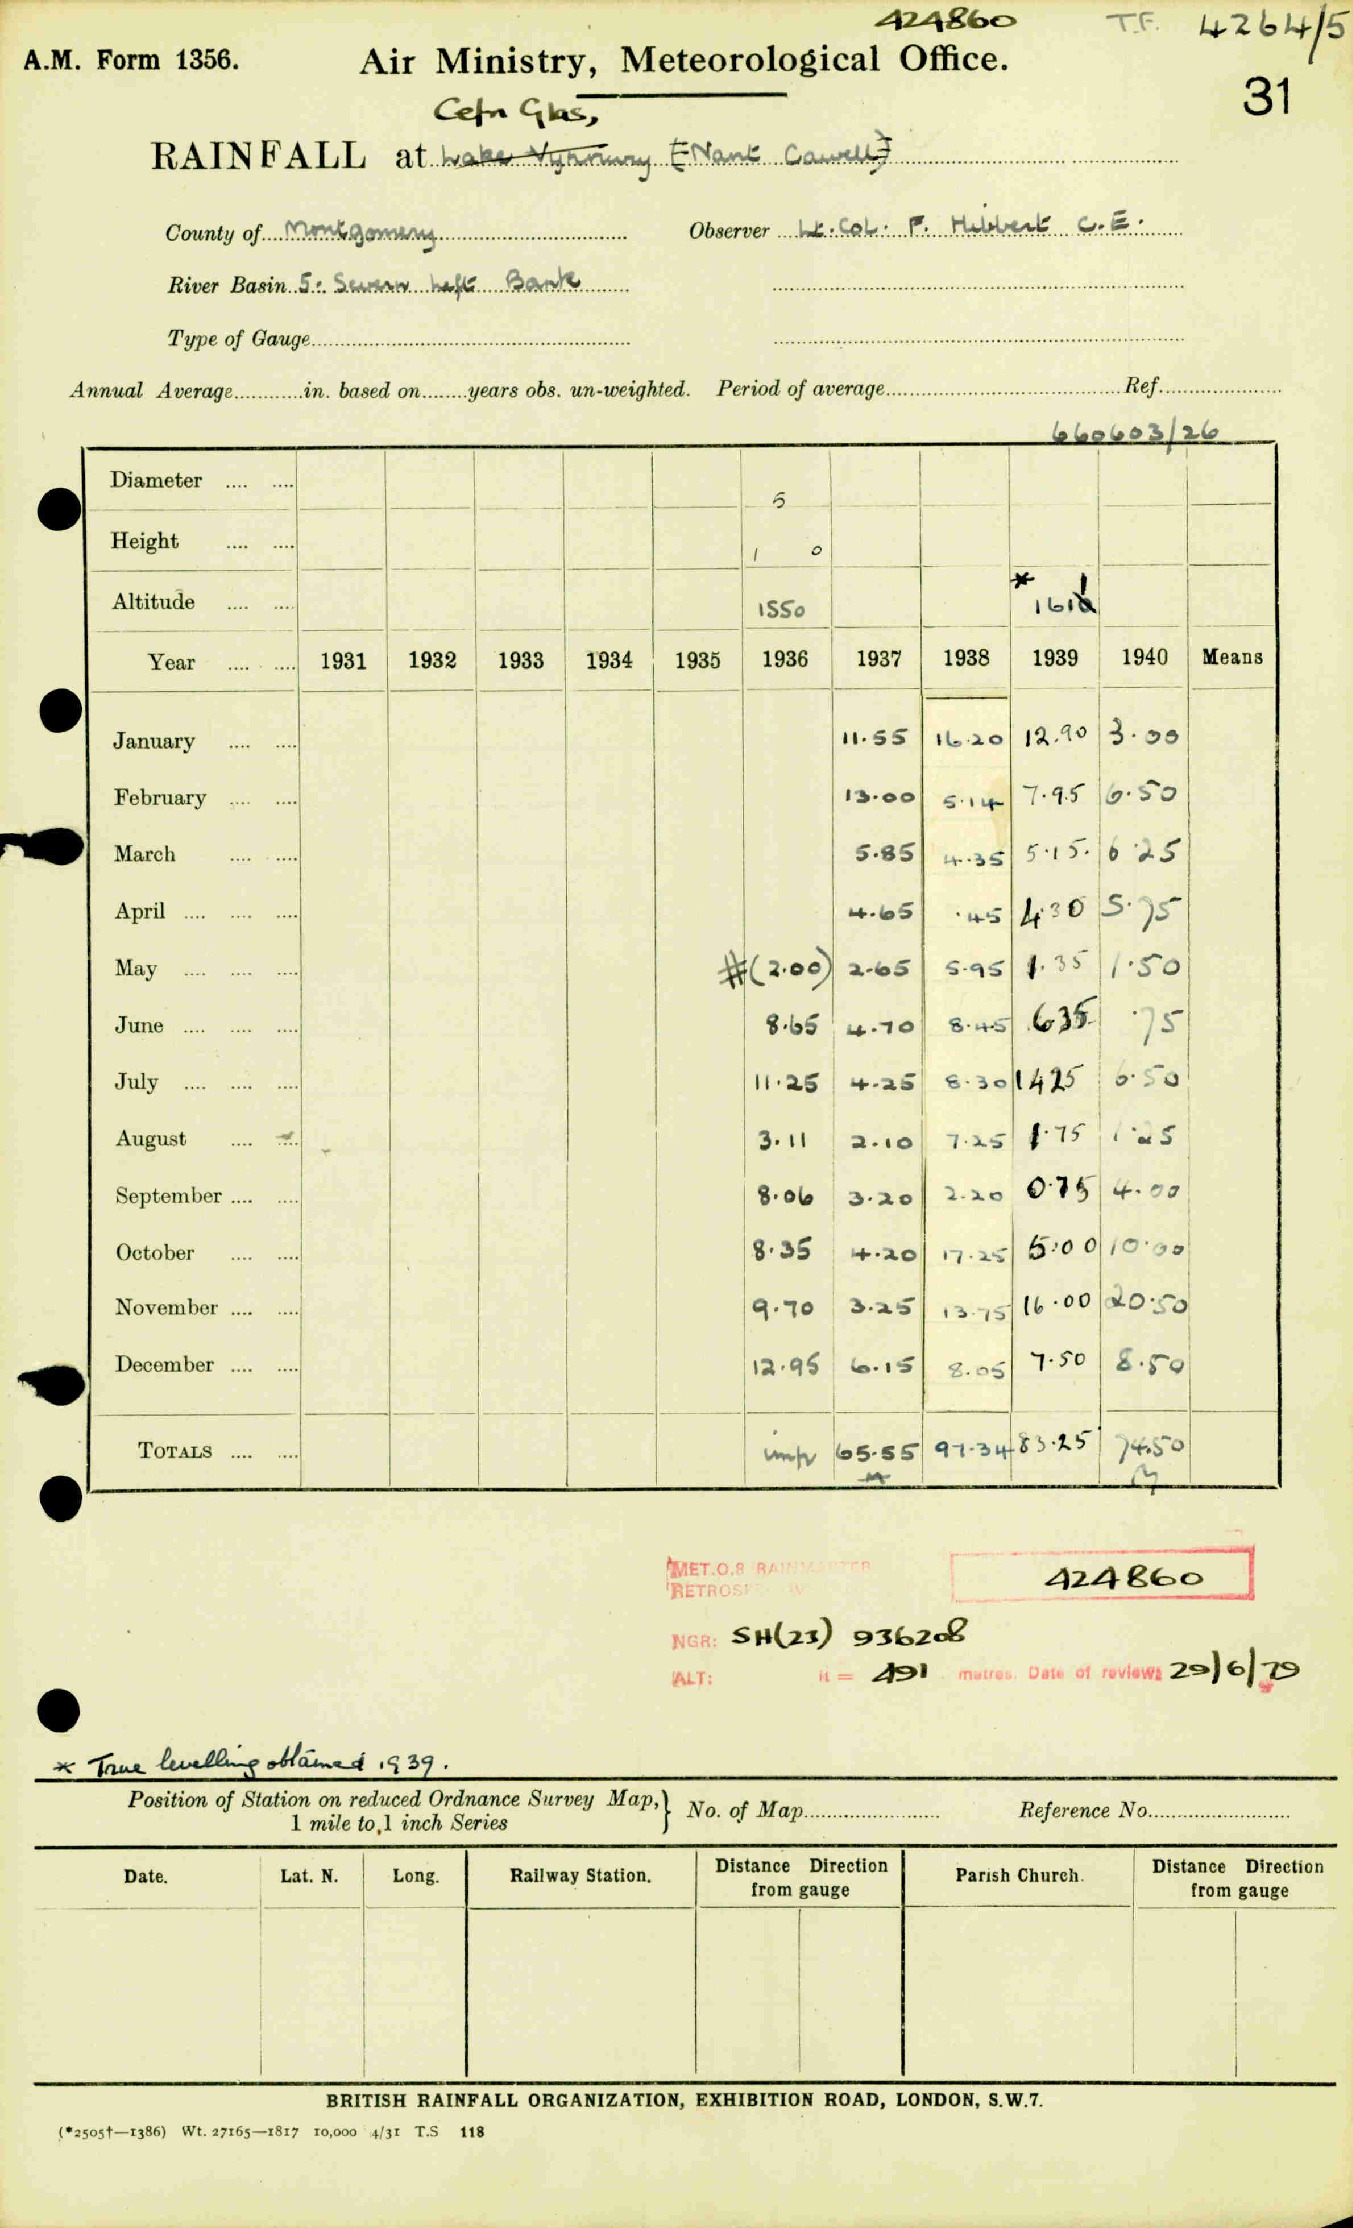 424860 T.F. 4264/5
A.M. Form 1356. Air Ministry, Meteorological Office.
31
Cefn Glas,
RAINFALL at Lake Vyrnwy [Nant Cawell]
County of Montgomery Observer Lt. Col. F. Hibbert C.E.
River Basin 5. Severn Left Bank
Type of Gauge
Annual Average in. based on years obs. un-weighted. Period of average Ref.
660603/26
Diameter 5
Height 1 0
Altitude 1550 * 1611
Year 1931 1932 1933 1934 1935 1936 1937 1938 1939 1940 Means
January 11.55 16.20 12.90 3.00
February 13.00 5.14 7.95 6.50
March 5.85 4.35 5.15 6.25
April 4.65 .45 4.30 5.75
May #(2.00) 2.65 5.95 1.35 1.50
June 8.65 4.70 8.45 6.35 .75
July 11.25 4.25 8.30 14.25 6.50
August 3.11 2.10 7.25 1.75 1.25
September 8.06 3.20 2.20 0.75 4.00
October 8.35 4.20 17.25 5.00 10.00
November 9.70 3.25 13.75 16.00 20.50
December 12.95 6.15 8.05 7.50 8.50
TOTALS imp 65.55 97.34 83.25 74.50
MET.O.8 RAINMASTER
424860
NGR: SH(23) 936208
ALT: ft = 491 metres. Date of review: 29/6/79
* True levelling obtained 1939.
Position of Station on reduced Ordnance Survey Map, } No. of Map Reference No.
1 mile to 1 inch Series
Date. Lat. N. Long. Railway Station. Distance Direction from gauge Parish Church. Distance Direction from gauge
BRITISH RAINFALL ORGANIZATION, EXHIBITION ROAD, LONDON, S.W.7.
(*2505†—1386) Wt. 27165—1817 10,000 4/31 T.S 118